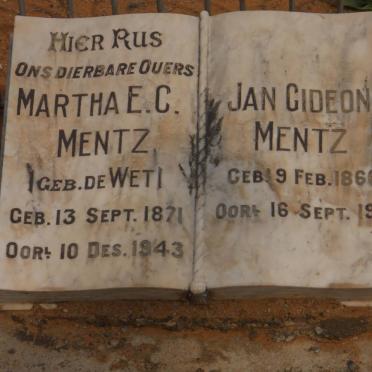 Hier Rus
Ons dierbare Ouers
Martha E.C.
Mentz
(Geb. de Wet)
Geb. 13 Sept. 1871
Oorl 10 Des. 1943
Jan Gideon
Mentz
Geb. 9 Feb.
Oorl 16 Sept.